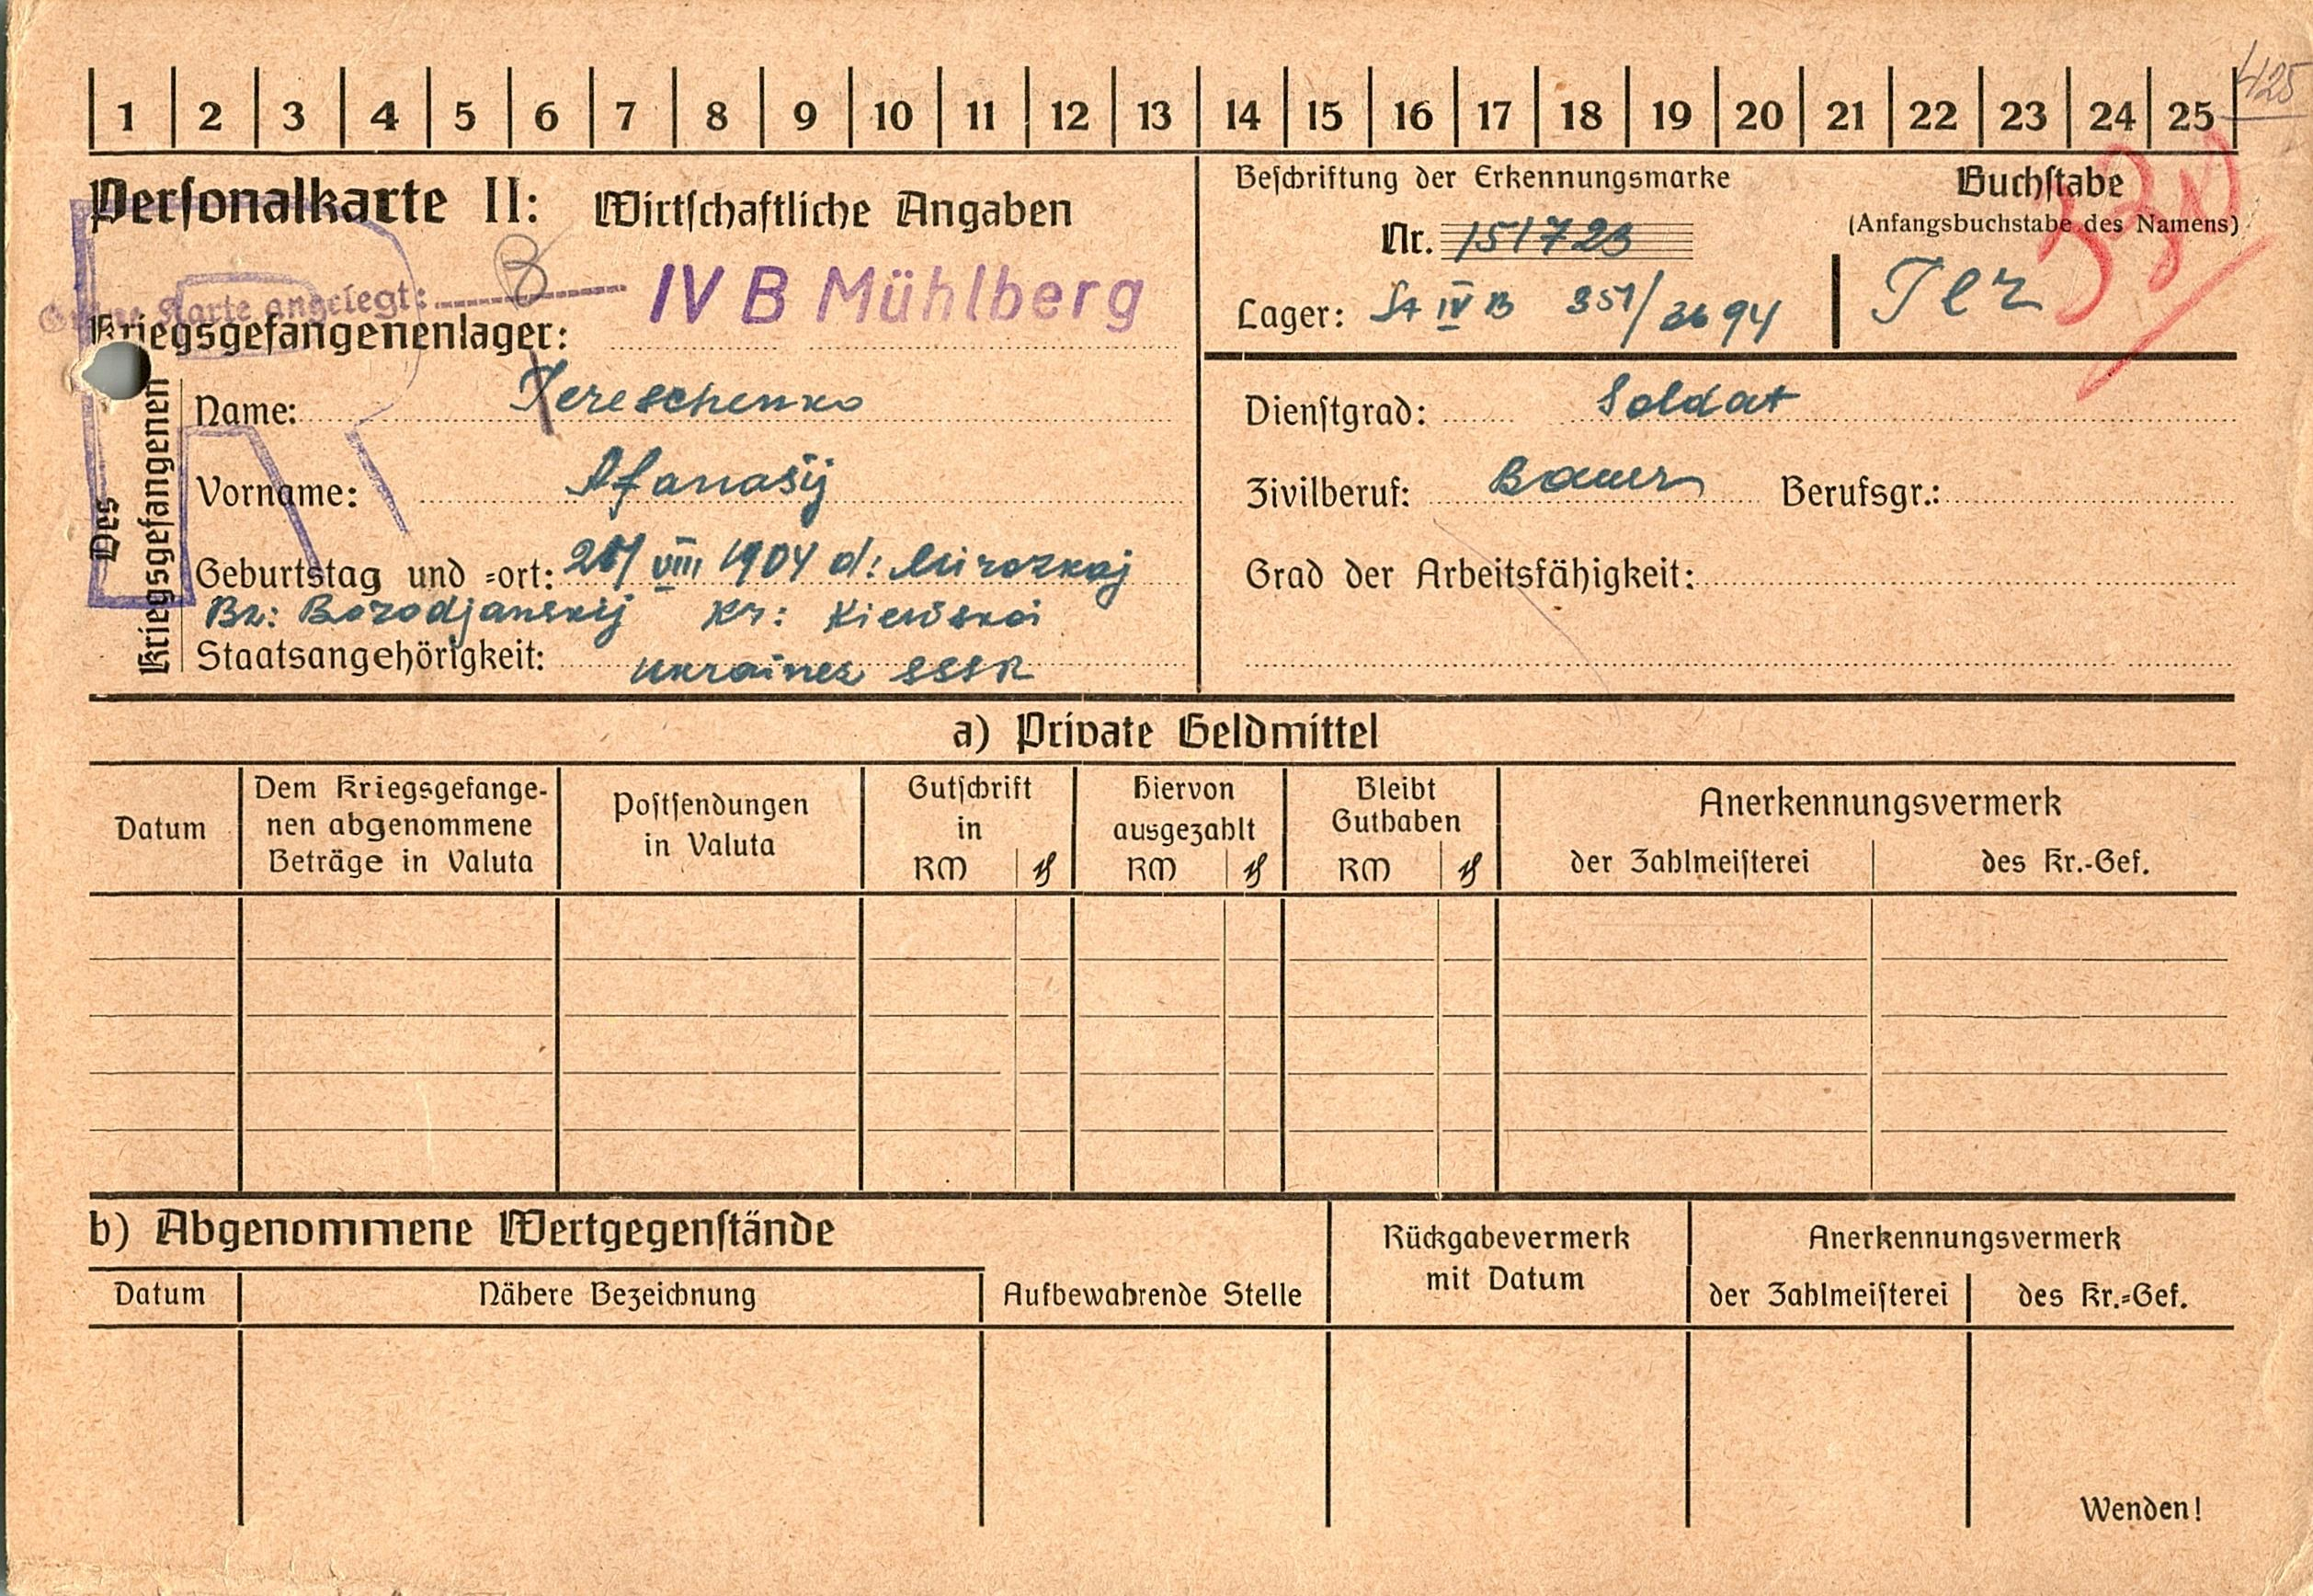 425
1 2 3 4 5 6 7 8 9 10 11 12 13 14 15 16 17 18 19 20 21 22 23 24 25
Personalkarte II: Wirtschaftliche Angaben
Karte angelegt:
Kriegsgefangenenlager: IV B Mühlberg
Beschriftung der Erkennungsmarke
Nr. 151723
Lager: St IV B 351/
Buchstabe
(Anfangsbuchstabe des Namens)
Ter
Des Kriegsgefangenen
Name: Tereschenko
Vorname: Afanasij
Geburtstag und =ort: VIII 1904 d:
Bz: Borodjanskij Kr: Kiewskoi
Staatsangehörigkeit: Ukrainer SSSR
Dienstgrad: Soldat
Zivilberuf: Bauer Berufsgr.:
Grad der Arbeitsfähigkeit:
a) Private Geldmittel
Datum
Dem Kriegsgefange-
nen abgenommene
Beträge in Valuta
Postsendungen
in Valuta
Gutschrift
in
RM ₰
Hiervon
ausgezahlt
RM ₰
Bleibt
Guthaben
RM ₰
Anerkennungsvermerk
der Zahlmeisterei des Kr.-Gef.
b) Abgenommene Wertgegenstände
Datum Nähere Bezeichnung Aufbewahrende Stelle
Rückgabevermerk
mit Datum
Anerkennungsvermerk
der Zahlmeisterei des Kr.=Gef.
Wenden!